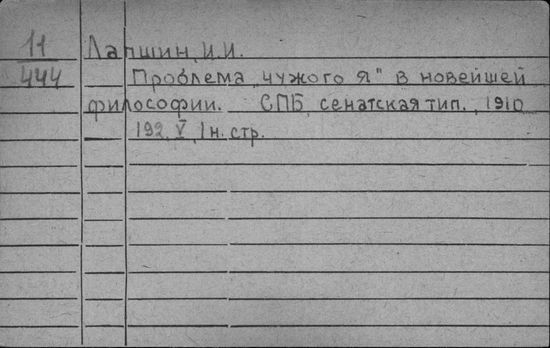 11
444
Лапшин, И.И.
Проблема „чужого Я" в новейшей
философии. СПБ, сенатская тип., 1910
192, V, 1 н. стр.